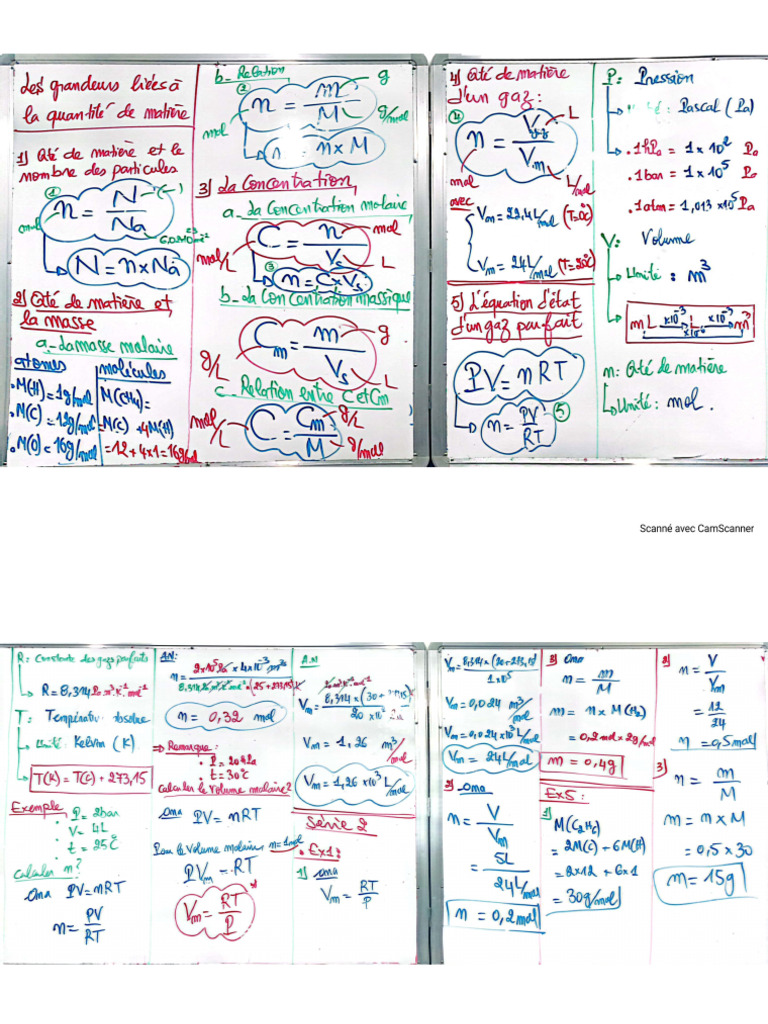 Les grandeurs liées à
la quantité de matière
1) Qté de matière et le
nombre des particules
① n = N / Na
mol
6.0
→ N = n × Na
2) Qté de matière et
la masse
a_ La masse molaire
atomes
. M(H) = 1g/mol
. M(C) = 12g/mol
. M(O) = 16g/mol
molécules
M(CH4) =
M(C) + 4M(H)
= 12 + 4×1 = 16g/mol
b_ Relation
② n = m / M
g
mol
g/mol
= n × M
3) La Concentration
a_ La Concentration molaire
C = n / Vs
mol
mol/L
L
③ n = C × Vs
b_ La Concentration massique
Cm = m / Vs
g
g/L
L
c_ Relation entre C et Cm
C = Cm / M
g/L
mol/L
g/mol
4) Qté de matière
d'un gaz :
④ n = Vg / Vm
L
mol
L/mol
avec
Vm = 22,4L/mol (T=0°C)
Vm = 24L/mol (T=20°C)
5) L'équation d'état
d'un gaz parfait
PV = nRT
→ n = PV / RT ⑤
P: Pression
: Pascal (Pa)
. 1hPa = 1 × 10² Pa
. 1bar = 1 × 10⁵ Pa
. 1atm = 1,013 × 10⁵ Pa
V: Volume
→ Unité : m³
mL ×10⁻³→ L ×10⁻³→ m³
n: Qté de matière
→ Unité : mol.
Scanné avec CamScanner
R: Constante des gaz parfaits
→ R = 8,314 Pa.m³.K⁻¹.mol⁻¹
T: Température absolue
→ Unité : Kelvin (K)
→ T(K) = T(C) + 273,15
Exemple
. P = 2bar
. V = 4L
. t = 25°C
Calculer n?
Ona PV = nRT
n = PV / RT
AN:
n = 2×10⁵ Pa × 4×10⁻³ m³ / 8,314 Pa.m³.K⁻¹.mol⁻¹ × (25+273,15) K
n = 0,32 mol
⇒ Remarque :
. P = 20hPa
. t = 30°C
Calculer le volume molaire?
Ona PV = nRT
Pour le volume molaire n = 1mol
PVm = RT
Vm = RT / P
A.N
Vm = 8,314 × (30 + / 20 × 10²
Vm = 1,26 m³/mol
Vm = 1,26 × 10³ L/mol
Série 2
. Ex1:
1) Ona
Vm = RT / P
Vm = 8,314 × (20+273,15) / 1.10⁵
Vm = 0,024 m³/mol
Vm = 0,024 × 10³ L/mol
Vm = 24L/mol
2) Ona
n = V / Vm
= 5L / 24L/mol
n = 0,2mol
3) Ona
n = m / M
m = n × M(H2)
= 0,2 mol × 2g/mol
m = 0,4g
Ex5:
1)
M(C2H6)
= 2M(C) + 6M(H)
= 2×12 + 6×1
= 30g/mol
2) n = V / Vm
= 12 / 24
n = 0,5mol
3)
n = m / M
m = n × M
= 0,5 × 30
m = 15g